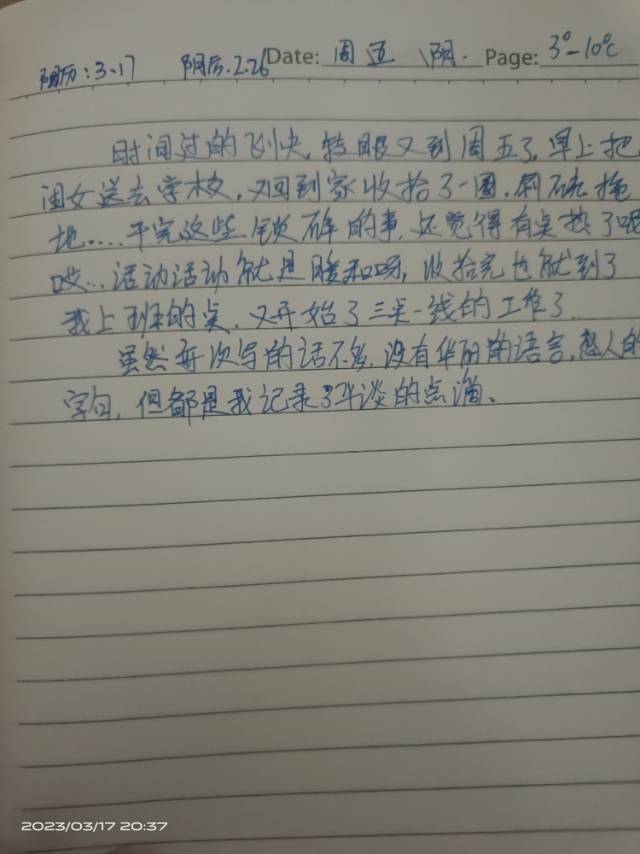 阳历:3.17 阴历.2.26 Date: 周五 阴. Page: 3°-10℃
时间过的飞快,转眼又到周五了,早上把
闺女送去学校,又回到家收拾了一圈.刷碗拖
地....干完这些锁碎的事,还觉得有点热了呢
哎...活动活动就是暖和呀,收拾完也就到了
我上班的点.又开始了三点一线的工作了.
虽然每次写的话不多,没有华丽的语言.感人的
字句,但都是我记录了平淡的点滴、
2023/03/17 20:37